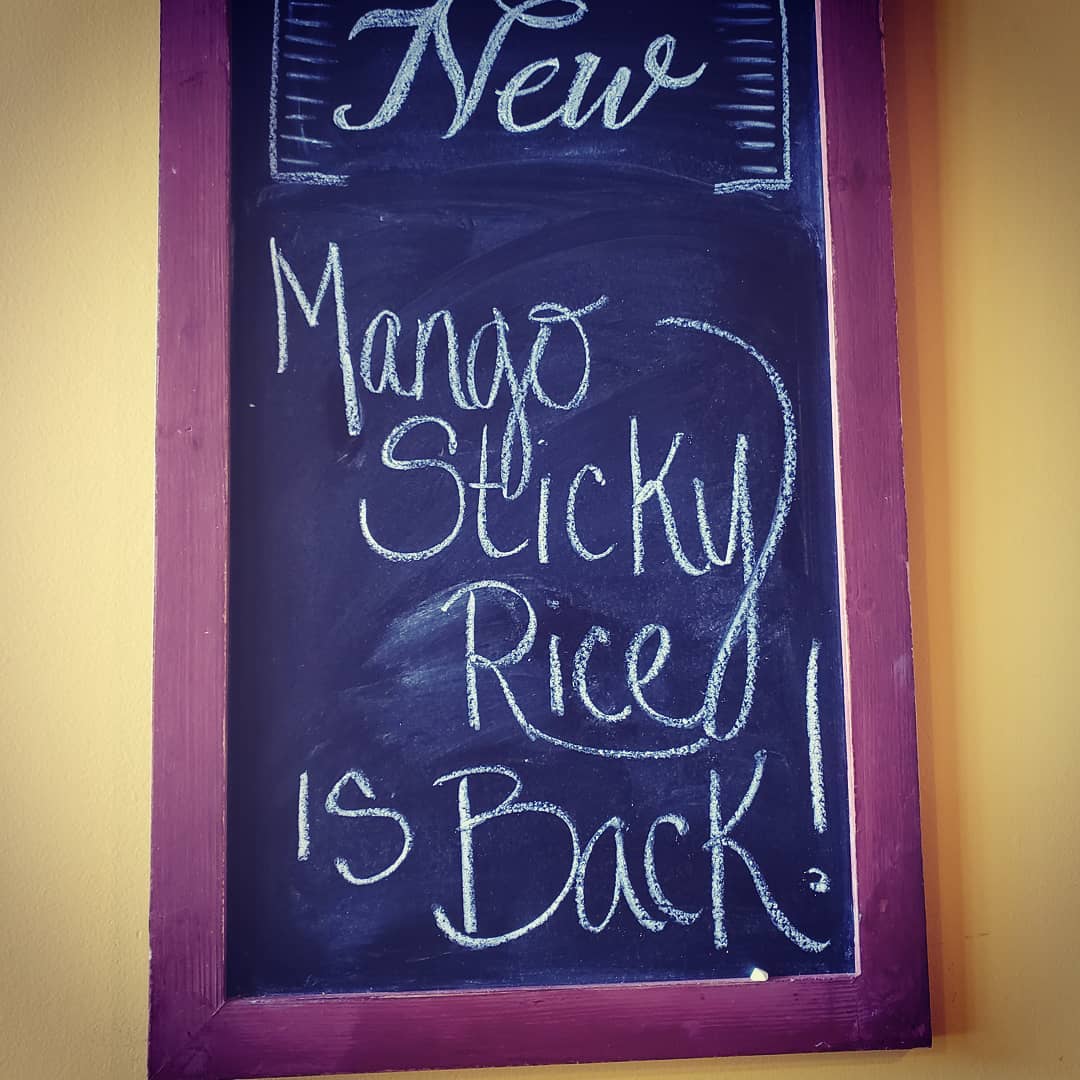 New
Mango
Sticky
Rice
is Back!